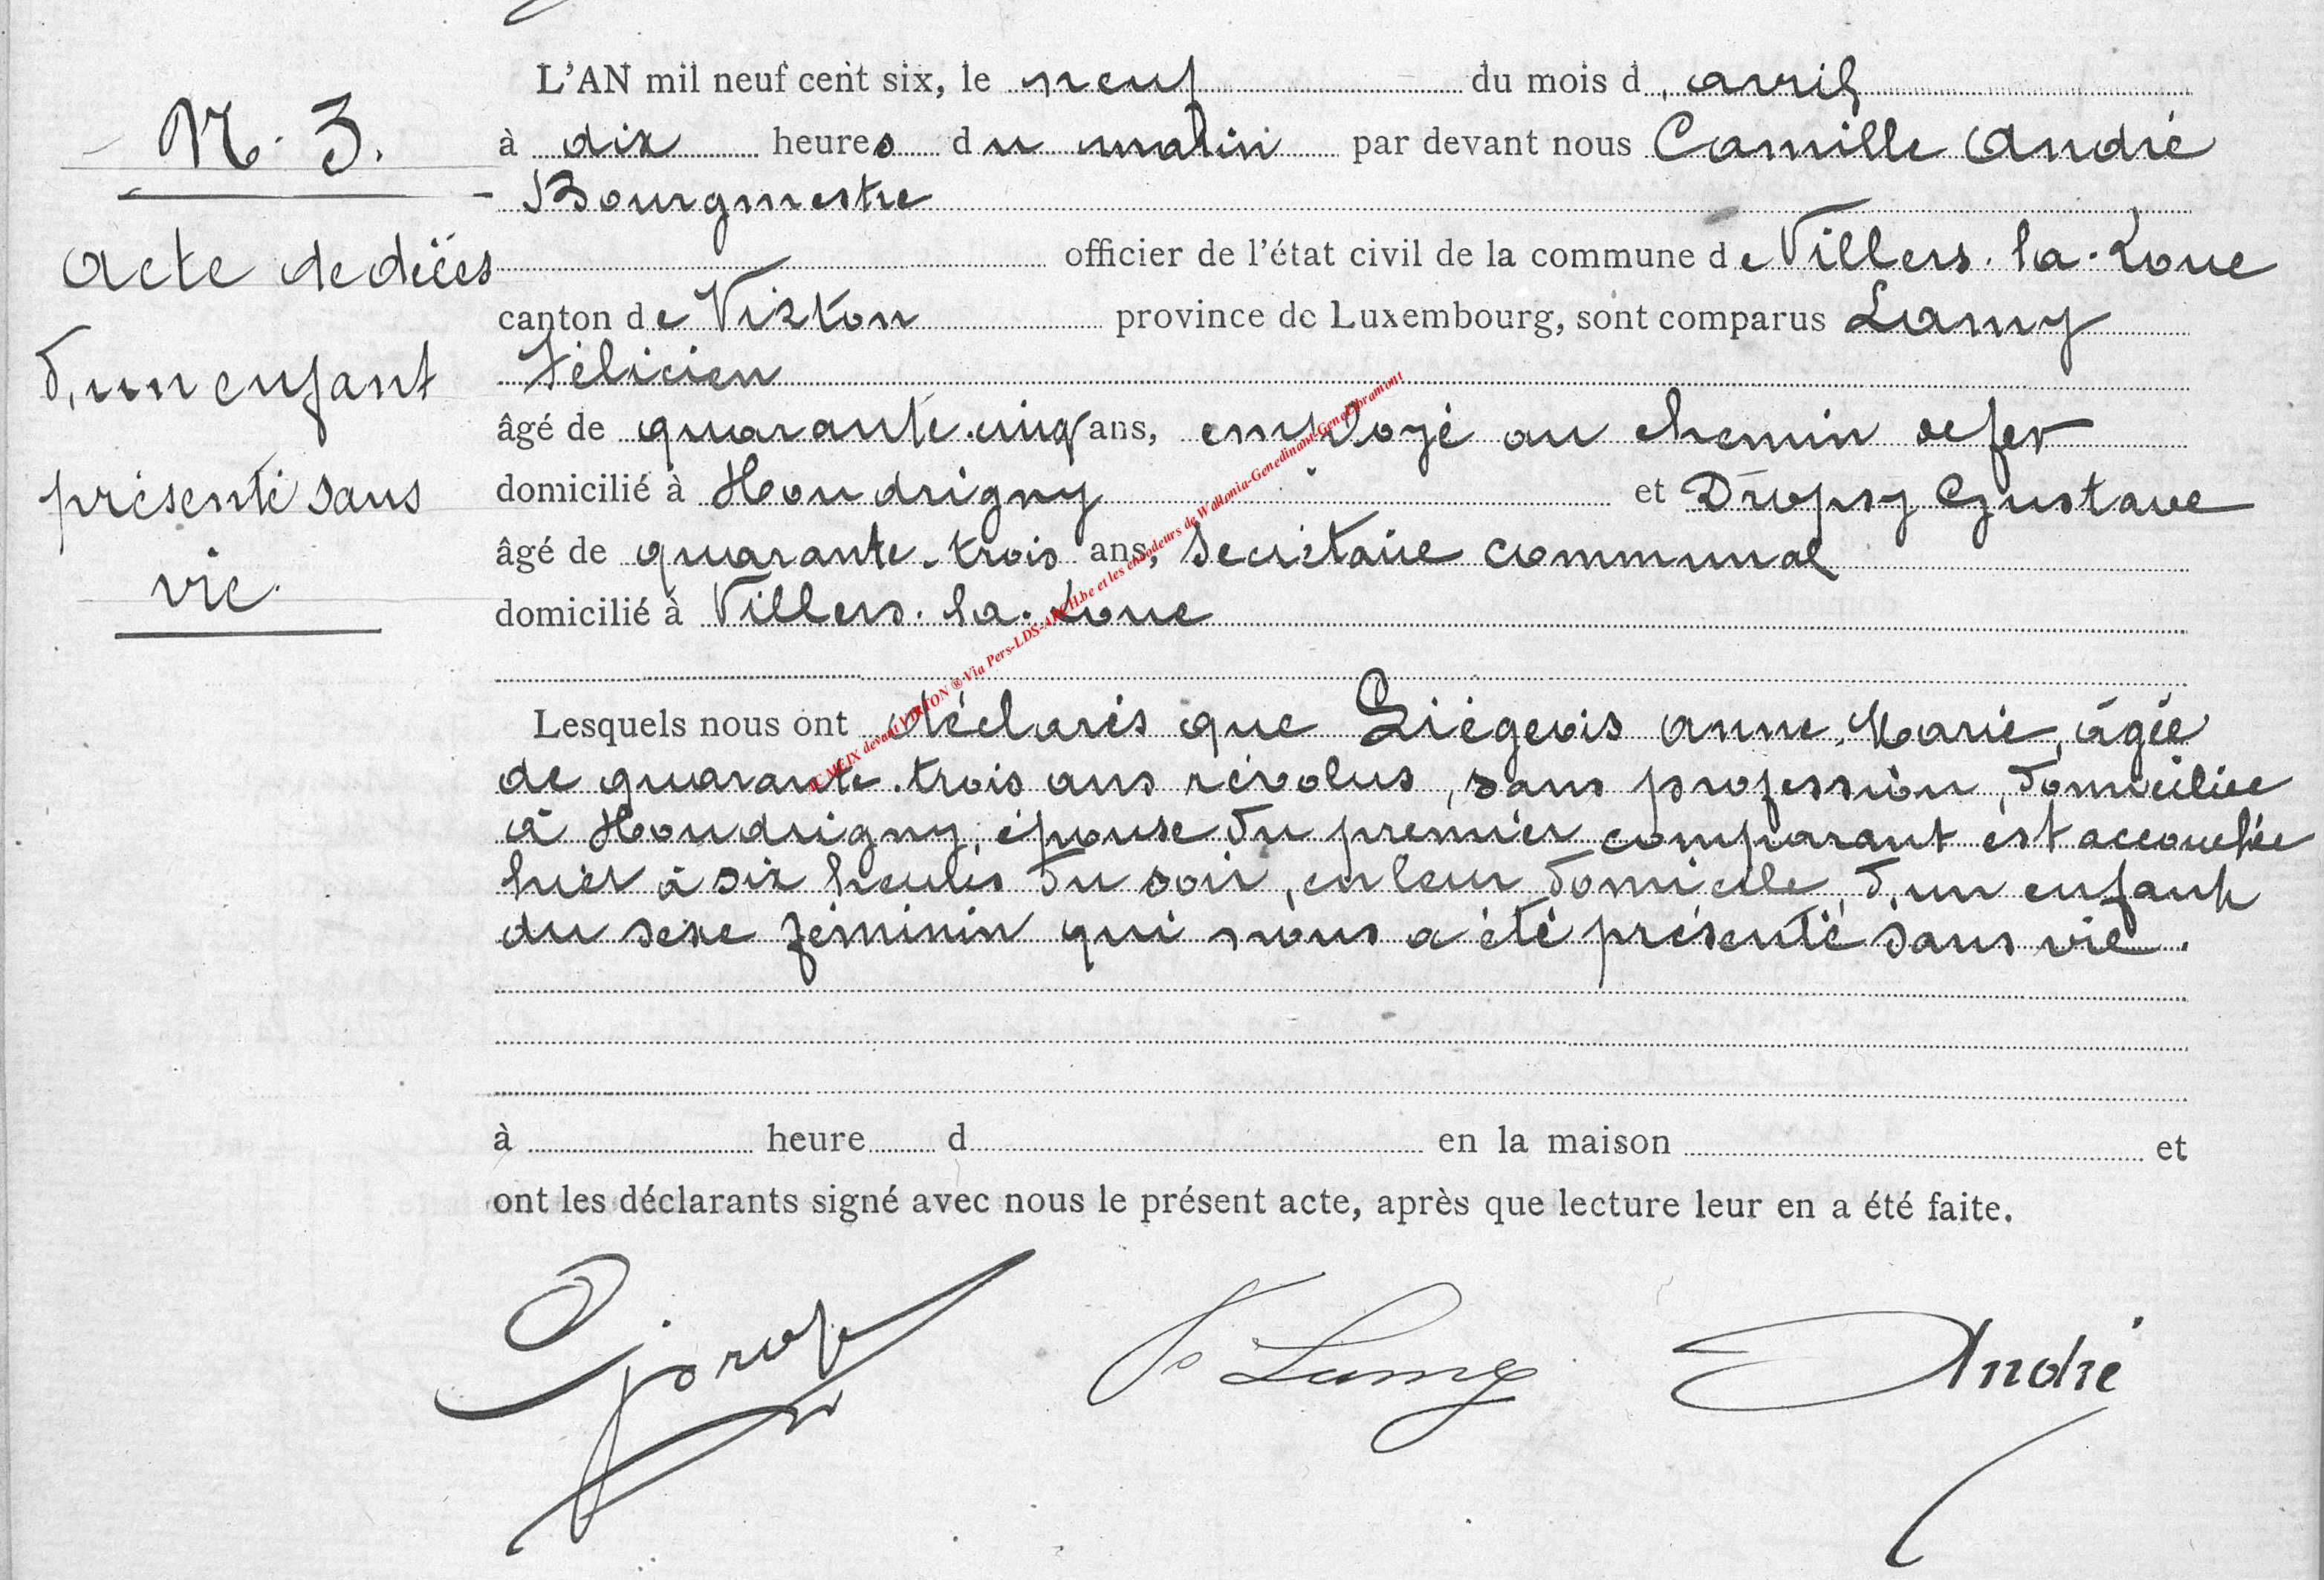 L'AN mil neuf cent six, le neuf du mois d'avril
N. 3.
à dix heures du matin par devant nous Camille André
Bourgmestre
Acte de décès
officier de l'état civil de la commune de Villers-la-Loue
canton de Virton province de Luxembourg, sont comparus Lamy
d'un enfant
Félicien
âgé de quarante-cinq ans, employé au chemin de fer
présenté sans
domicilié à Houdrigny et Dropsy Gustave
âgé de quarante-trois ans, secrétaire communal
vie.
domicilié à Villers-la-Loue
Lesquels nous ont déclarés que Liégeois Anne-Marie, âgée
de quarante-trois ans révolus, sans profession, domiciliée
à Houdrigny, épouse du premier comparant est accouchée
hier à six heures du soir, en leur domicile, d'un enfant
du sexe féminin qui nous a été présenté sans vie.
à heure d en la maison et
ont les déclarants signé avec nous le présent acte, après que lecture leur en a été faite.
F Lamy André
MEIX devant VIRTON ® Via Pers-LDS-ARCH.be et les encodeurs de Wallonia-Genedinant-GeneLibramont